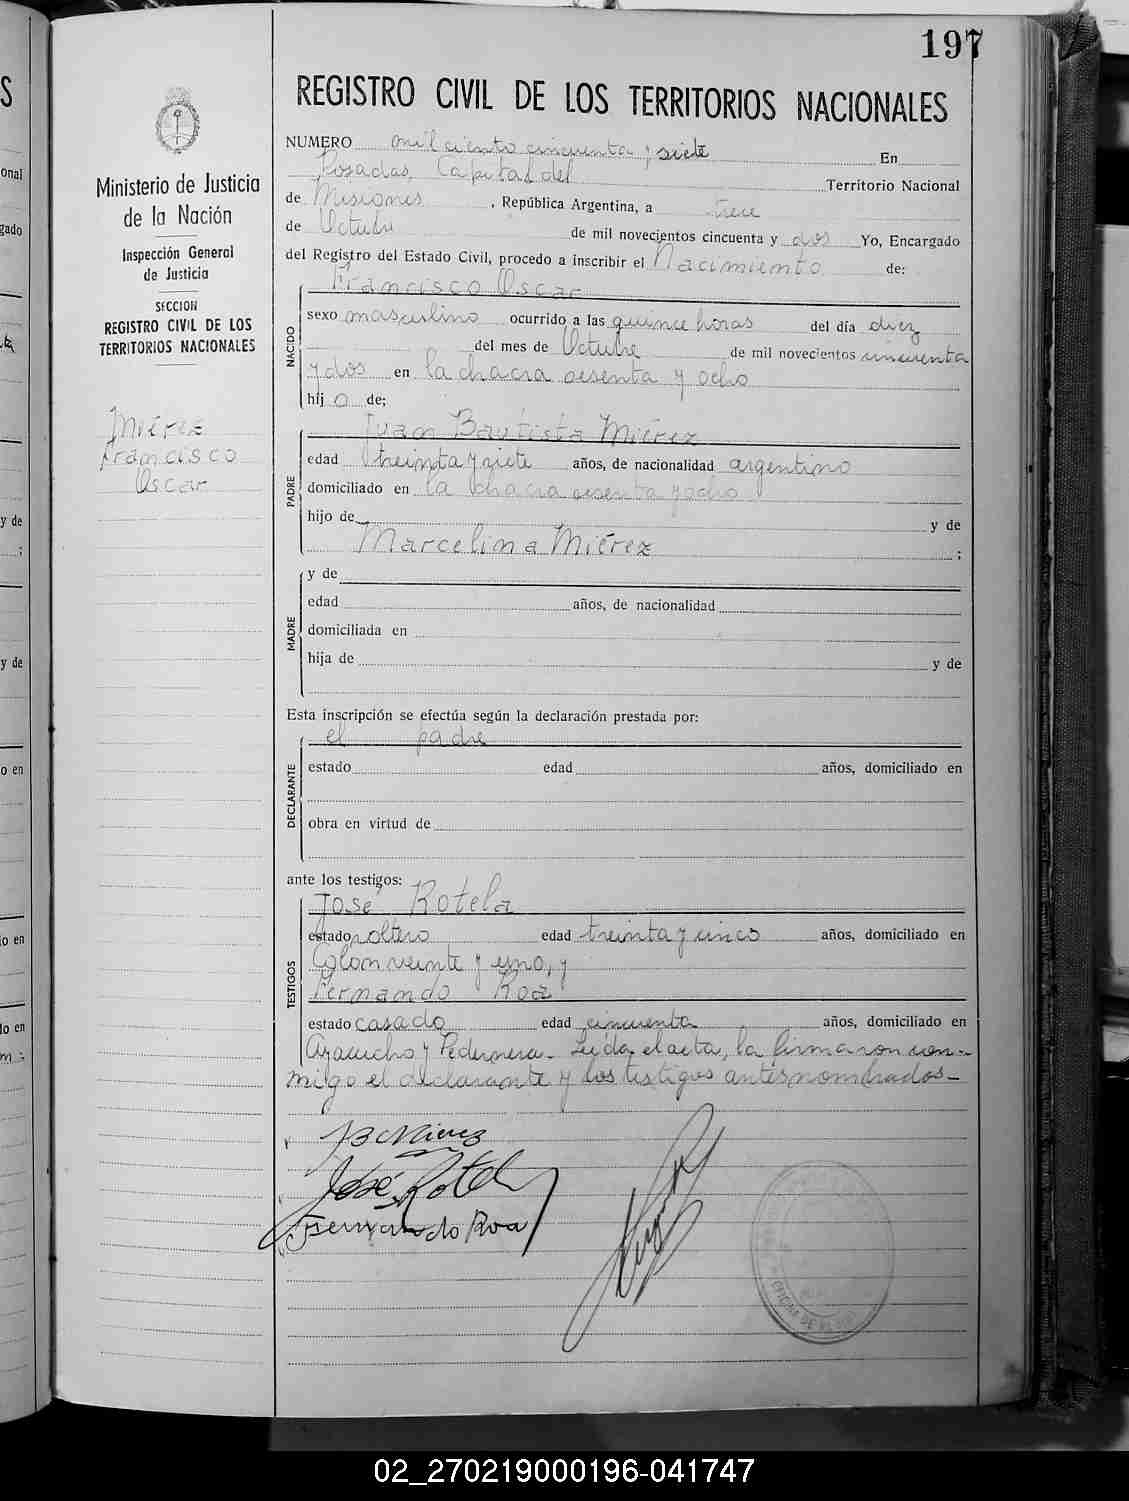 197
REGISTRO CIVIL DE LOS TERRITORIOS NACIONALES
Ministerio de Justicia
de la Nación
Inspección General
de Justicia
SECCION
REGISTRO CIVIL DE LOS
TERRITORIOS NACIONALES
Miérez
Francisco
Oscar
NUMERO mil ciento cincuenta y siete En
Posadas, Capital del Territorio Nacional
de Misiones, República Argentina, a trece
de Octubre de mil novecientos cincuenta y dos Yo, Encargado
del Registro del Estado Civil, procedo a inscribir el Nacimiento de:
Francisco Oscar
NACIDO
sexo masculino ocurrido a las quince horas del día diez
del mes de Octubre de mil novecientos cincuenta
y dos en la chacra sesenta y ocho
hijo de;
Juan Bautista Miérez
PADRE
edad treinta y siete años, de nacionalidad argentino
domiciliado en la chacra sesenta y ocho
hijo de y de
Marcelina Miérez ;
MADRE
y de
edad años, de nacionalidad
domiciliada en
hija de y de
Esta inscripción se efectúa según la declaración prestada por:
el padre
DECLARANTE
estado edad años, domiciliado en
obra en virtud de
ante los testigos:
José Rotela
TESTIGOS
estado soltero edad treinta y cinco años, domiciliado en
Colon veinte y uno, y
Fernando Roa
estado casado edad cincuenta años, domiciliado en
Ayacucho y Pedernera. Leida el acta, la firmaron con-
migo el declarante y los testigos antes nombrados-
JB Mierez
José Rotela
Fernando Roa
OFICINA DE
02_270219000196-041747